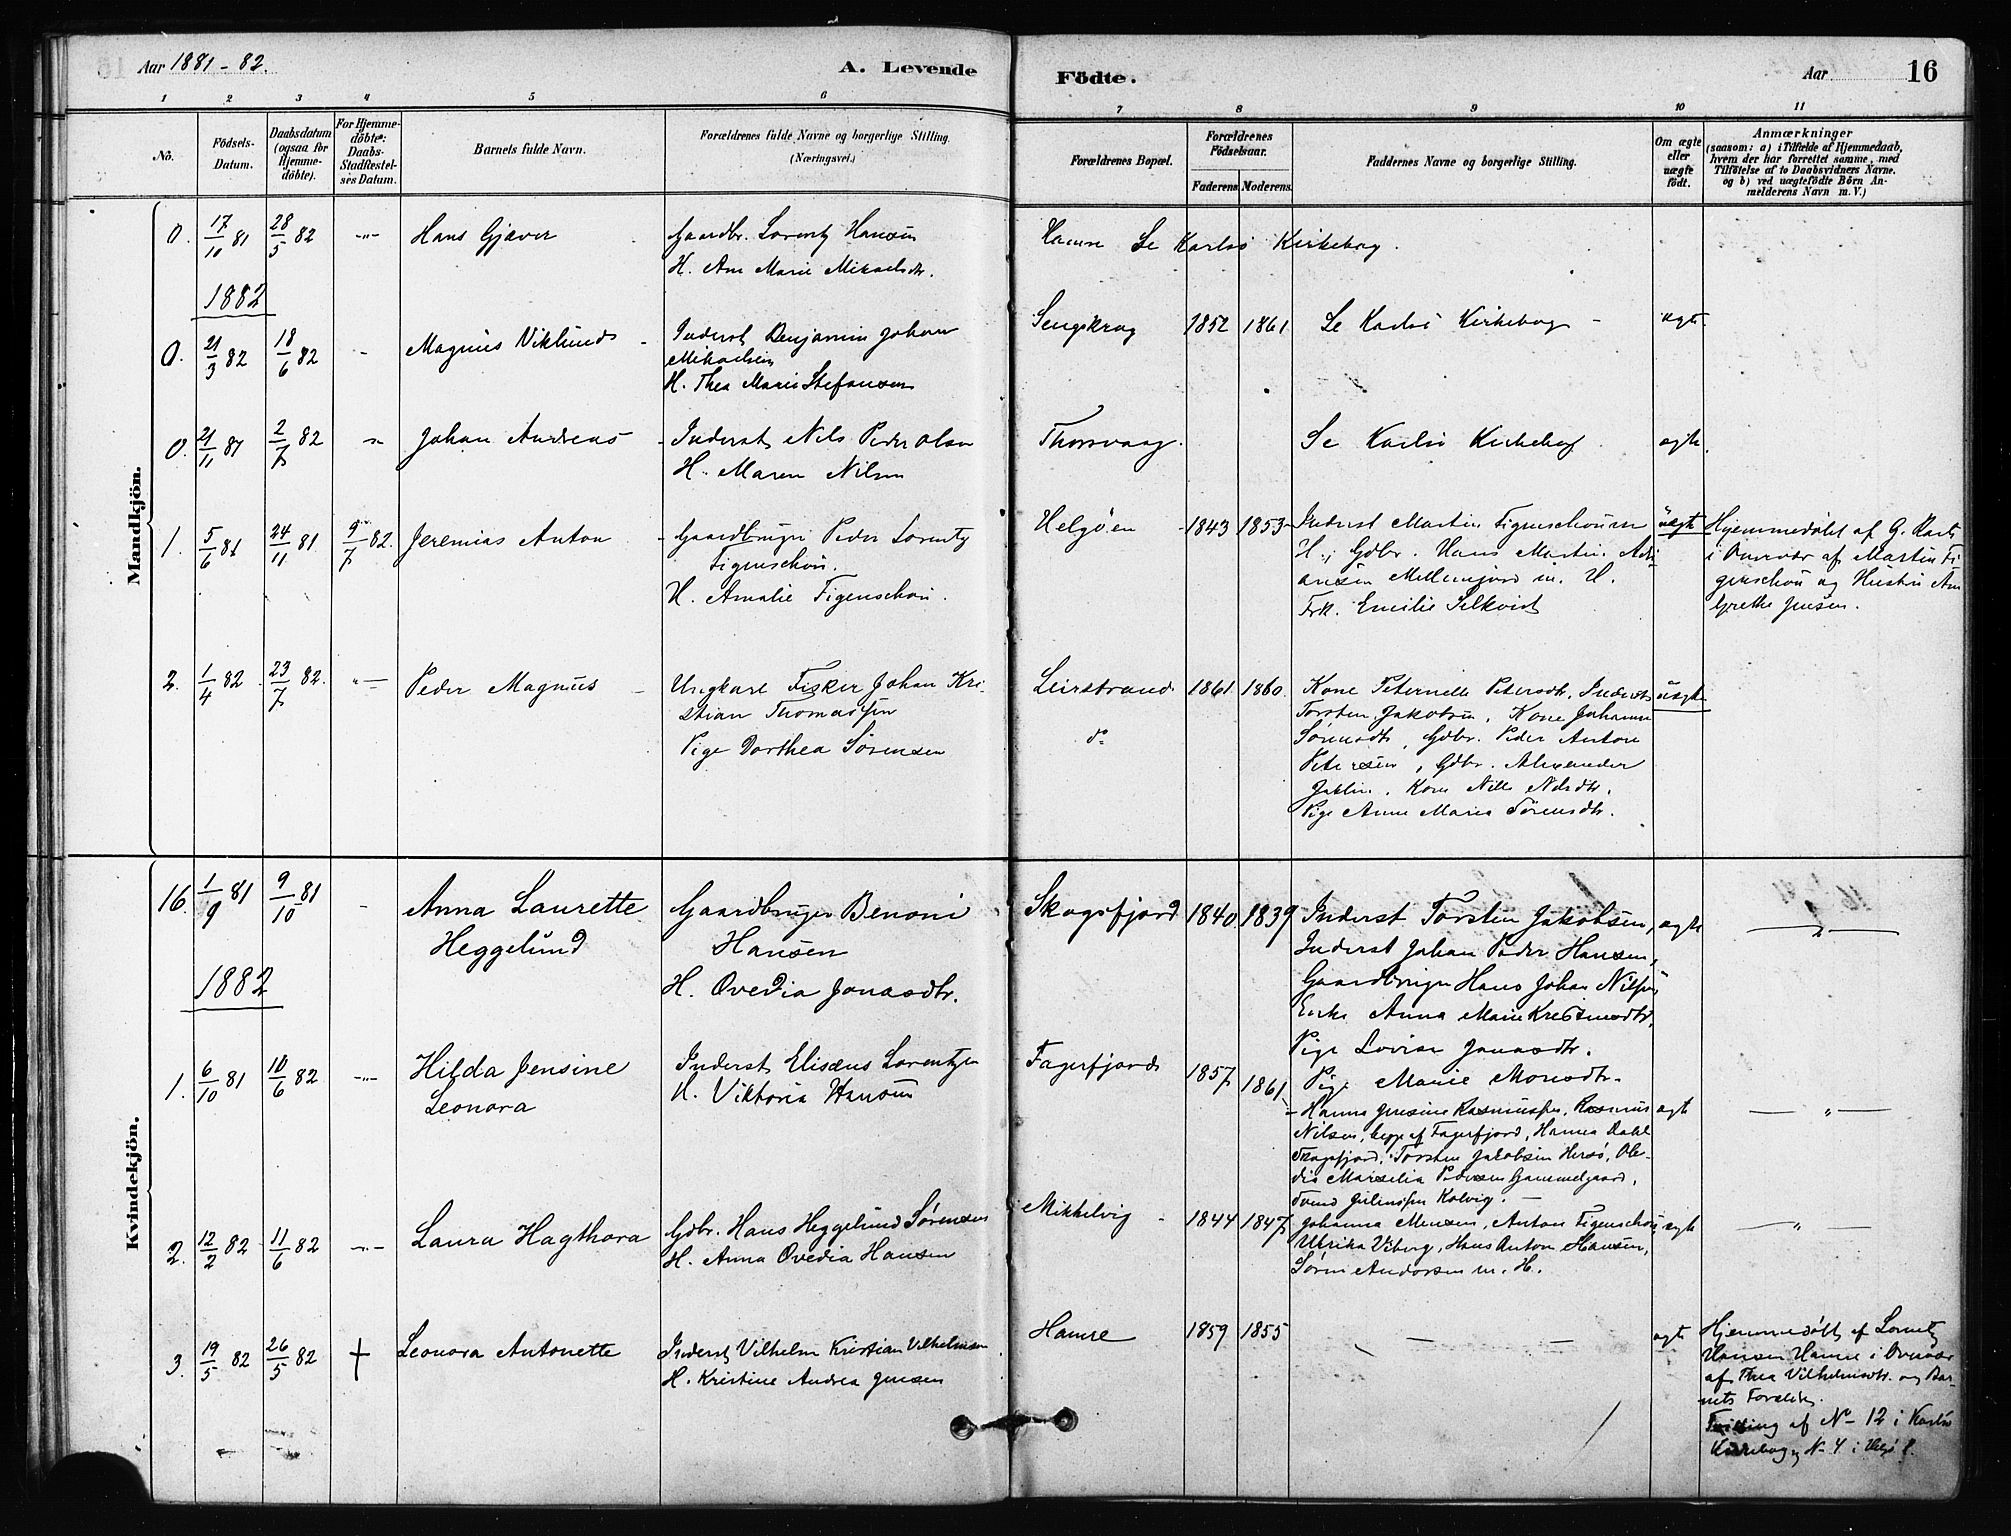 Aar 1881-82.
A. Levende
Födte.
Aar
16
1 2 3 4 5 6 7 8 9 10 11
No.
Födsels-Datum.
Daabsdatum (ogsaa for Hjemme-döbte).
For Hjemme-döbte: Daabs-Stadfæstel-ses Datum.
Barnets fulde Navn.
Forældrenes fulde Navne og borgerlige Stilling. (Næringsvei.)
Forældrenes Bopæl.
Forældrenes Födselsaar.
Faderens. Moderens.
Faddernes Navne og borgerlige Stilling.
Om ægte eller uægte födt.
Anmærkninger
(saasom: a) i Tilfælde af Hjemmedaab,
hvem der har forrettet samme, med
Tilföielse af to Daabsvidners Navne.
og b) ved uægtefödte Börn An-
melderens Navn m. V.)
Mandkjön.
0. 17/10 81 28/5 82 -"- Hans Gjæver
Gaardbr. Lorentz Hansen
H. Ane Marie Mikaelsdtr.
Hamre Se Karlsö Kirkebog.
1882
0. 21/3 82 18/6 82 - Magnus Viklund
Inderst Benjamin Johan
Mikaelsen
H. Thea Marie Stefansen
Sengskrog 1852 1861 Se Karlsö Kirkebog - ægte
0. 21/11 81 2/7 82 Johan Andreas
Inderst Nils Peder Olsen
H. Maren Nilsen
Thorsvaag. Se Karlsö Kirkebog ægte
1. 5/6 81 24/11 81 9/7 82. Jeremias Anton
Gaardbruger Peder Lorentz
Figenschou.
H. Amalie Figenschou.
Helgøen 1843 1853
Inderst Martin Figenschou m
H., Gdbr. Hans Martin Adri-
ansen Mellemjord m. H.
Frk. Emilie Selkvist
uægte
Hjemmedøbt af G.
i Overvær af Martin Fi-
genschou og Hustru Ane
Grethe Jensen.
2. 1/4 82 23/7 82. "- Peder Magnus
Ungkarl Fisker Johan Kri-
stian Thomassen
Pige Dorthea Sørensen
Leirstrand 1861 1860.
do
Kone Peternelle Petersdtr. Inderst
Torsten Jakobsen, Kone Johanna
Sørensdtr, Gdbr. Peder Anton
Petersen, Gdbr. Alexander
Kone Nille Nilsdtr.
Pige Anne Marie Sørensdtr.
uægte
Kvindekjön.
16. 1/9 81 9/10 81 - Anna Laurette
Heggelund
Gaardbruger Benoni
Hansen
H. Ovedia Jonasdtr.
Skogsfjord 1840 1839
Inderst Torsten Jakobsen,
Inderst Johan Peder Hansen,
Gaardbruger Hans Johan Nilsen
Enke Anna Marie Kristensdtr,
Pige Lovise Jonasdtr.
Pige Marie Monsdtr.
ægte
1882
1. 6/10 81 10/6 82 -"- Hilda Jensine
Leonora
Inderst Elisæus Lorentzen
H. Viktoria Hansen
Fagerfjord 1857 1861
Hanna Jensine Rasmussen, Rasmus
Nilsen, begge af Fagerfjord, Hanna Dahl
Skogsfjord, Torsten Jakobsen Hersø, Ole-
dis Marselia Pedersen Gammelgaard,
Svend Juliussen Kalvig. -
ægte - " -
2. 12/2 82 11/6 82 -"- Laura Hagthora
Gdbr. Hans Heggelund Sørensen
H. Anna Ovedia Hansen
Mikkelvig 1844 1847
Johanna Mensen, Anton Figenschou,
Ulrika Viberg, Hans Anton Hansen,
Søren Andersen m. H.
ægte - " -
3 19/5 82 26/5 82 + Leonora Antonette
Inderst Vilhelm Kristian Vilhelmsen
H. Kristine Andrea Jensen
Hamre 1859 1855 - - - ægte
Hjemmedøbt af Lorentz
Hansen Hamre i Overvær
af Thea Vilhelmsdtr. og Bar-
nets Forældre.
Tvilling af No 12 i Karlsö
Kirkebog, No 4 i Helgö